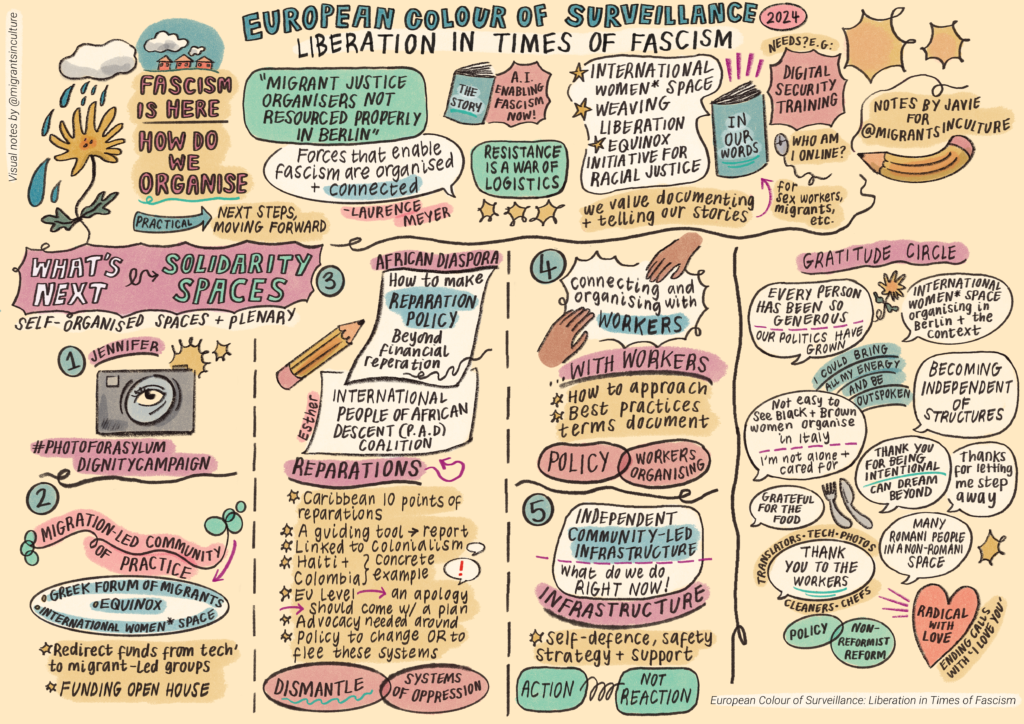 Visual notes by @migrantsinculture
EUROPEAN COLOUR OF SURVEILLANCE
2024
LIBERATION IN TIMES OF FASCISM
FASCISM
IS HERE
HOW DO
WE
ORGANISE
PRACTICAL
NEXT STEPS,
MOVING FORWARD
"MIGRANT JUSTICE
ORGANISERS NOT
RESOURCED PROPERLY
IN BERLIN"
Forces that enable
fascism are organised
+ connected
-LAURENCE
MEYER
THE
STORY
A.I.
ENABLING
FASCISM
NOW!
RESISTANCE
IS A WAR OF
LOGISTICS
INTERNATIONAL
WOMEN* SPACE
WEAVING
LIBERATION
EQUINOX
INITIATIVE FOR
RACIAL JUSTICE
IN
OUR
WORDS
we value documenting
+ telling our stories
NEEDS? E.G:
DIGITAL
SECURITY
TRAINING
WHO AM
I ONLINE?
for
sex workers,
migrants,
etc.
NOTES BY JAVIE
FOR
@MIGRANTSINCULTURE
WHAT'S
NEXT
SOLIDARITY
SPACES
SELF-ORGANISED SPACES + PLENARY
1
JENNIFER
#PHOTOFORASYLUM
DIGNITYCAMPAIGN
2
MIGRATION-LED COMMUNITY
OF PRACTICE
GREEK FORUM OF MIGRANTS
EQUINOX
INTERNATIONAL WOMEN* SPACE
Redirect funds from 'tech'
to migrant-led groups
FUNDING OPEN HOUSE
3
AFRICAN DIASPORA
How to make
REPARATION
POLICY
Beyond
financial
reperation
Esther
INTERNATIONAL
PEOPLE OF AFRICAN
DESCENT (P.A.D)
COALITION
REPARATIONS
Caribbean 10 points of
reparations
A guiding tool → report
Linked to Colonialism
Haiti + } Concrete
Colombia } example
!
EU Level → an apology
→ should come w/ a plan
Advocacy needed around
Policy to change OR to
flee these systems
DISMANTLE
SYSTEMS
OF OPPRESSION
4
connecting and
organising with
WORKERS
WITH WORKERS
How to approach
Best practices
terms document
POLICY
WORKERS
ORGANISING
5
INDEPENDENT
COMMUNITY-LED
INFRASTRUCTURE
What do we do
RIGHT NOW!
INFRASTRUCTURE
Self-defence, safety
strategy + support
ACTION
NOT
REACTION
GRATITUDE CIRCLE
EVERY PERSON
HAS BEEN SO
GENEROUS
OUR POLITICS HAVE
GROWN
INTERNATIONAL
WOMEN* SPACE
organising in
Berlin + the
context
I COULD BRING
ALL MY ENERGY
AND BE
OUTSPOKEN
BECOMING
INDEPENDENT
OF
STRUCTURES
Not easy to
see Black + Brown
women organise
in Italy
I'm not alone +
cared for
THANK YOU
FOR BEING
INTENTIONAL
CAN DREAM
BEYOND
Thanks
for letting
me step
away
GRATEFUL
FOR THE
FOOD
MANY
ROMANI PEOPLE
IN A NON-ROMANI
SPACE
TRANSLATORS·TECH·PHOTOS
THANK
YOU TO THE
WORKERS
CLEANERS·CHEFS
POLICY
NON-
REFORMIST
REFORM
RADICAL
WITH
LOVE
ENDING CALLS
WITH 'I LOVE YOU'
European Colour of Surveillance: Liberation in Times of Fascism